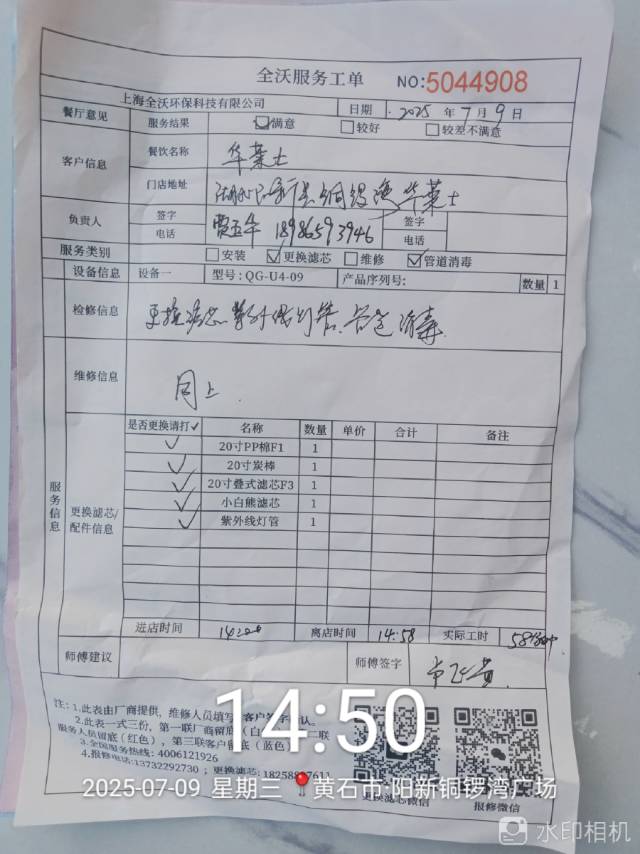 全沃服务工单 NO:5044908
上海全沃环保科技有限公司 日期 2025 年 7 月 9 日
餐厅意见 服务结果 满意 较好 较差不满意
客户信息 餐饮名称 华莱士
门店地址 铜锣湾华莱士
负责人 签字 电话 18986593946 签字 电话
服务类别 安装 ✓更换滤芯 维修 ✓管道消毒
设备信息 设备一 型号:QG-U4-09 产品序列号: 数量 1
检修信息 更换滤芯 紫外线灯管、管道消毒
维修信息 同上.
服务信息 更换滤芯/配件信息
是否更换请打✓ 名称 数量 单价 合计 备注
✓ 20寸PP棉F1 1
✓ 20寸炭棒 1
✓ 20寸叠式滤芯F3 1
✓ 小白熊滤芯 1
✓ 紫外线灯管 1
进店时间 离店时间 14:58 实际工时
师傅建议 师傅签字
注:1.此表由厂商提供,维修人员填写客户签字确认。
2.此表一式三份,第一联厂商留底(白 二联
服务人员留底(红色),第三联客户留底(蓝色)
3.全国服务热线:4006121926
4.报修电话:13732292730 ;更换滤芯:18258 7611
更换滤芯微信 报修微信
14:50
2025-07-09 星期三 黄石市·阳新铜锣湾广场
水印相机